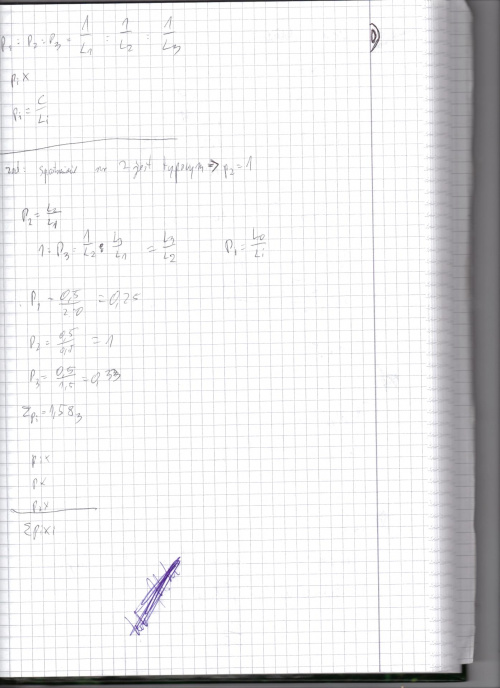 p₁ : p₂ : p₃ = 1/L₁ : 1/L₂ : 1/L₃
pᵢ x
pᵢ = C/Lᵢ
2 jest typowym => p₂ = 1
P₂ = L₂/L₁
1 : P₃ = 1/L₂ : L₃/L₁ = L₃/L₂ P₁ = L₀/Lᵢ
P₁ = 0,5/2,0 = 0,25
P₂ = 0,5/0,5 = 1
P₃ = 0,5/1,5 = 0,33
Σpᵢ = 1,583
pᵢx
px
pᵢx
Σpᵢxᵢ